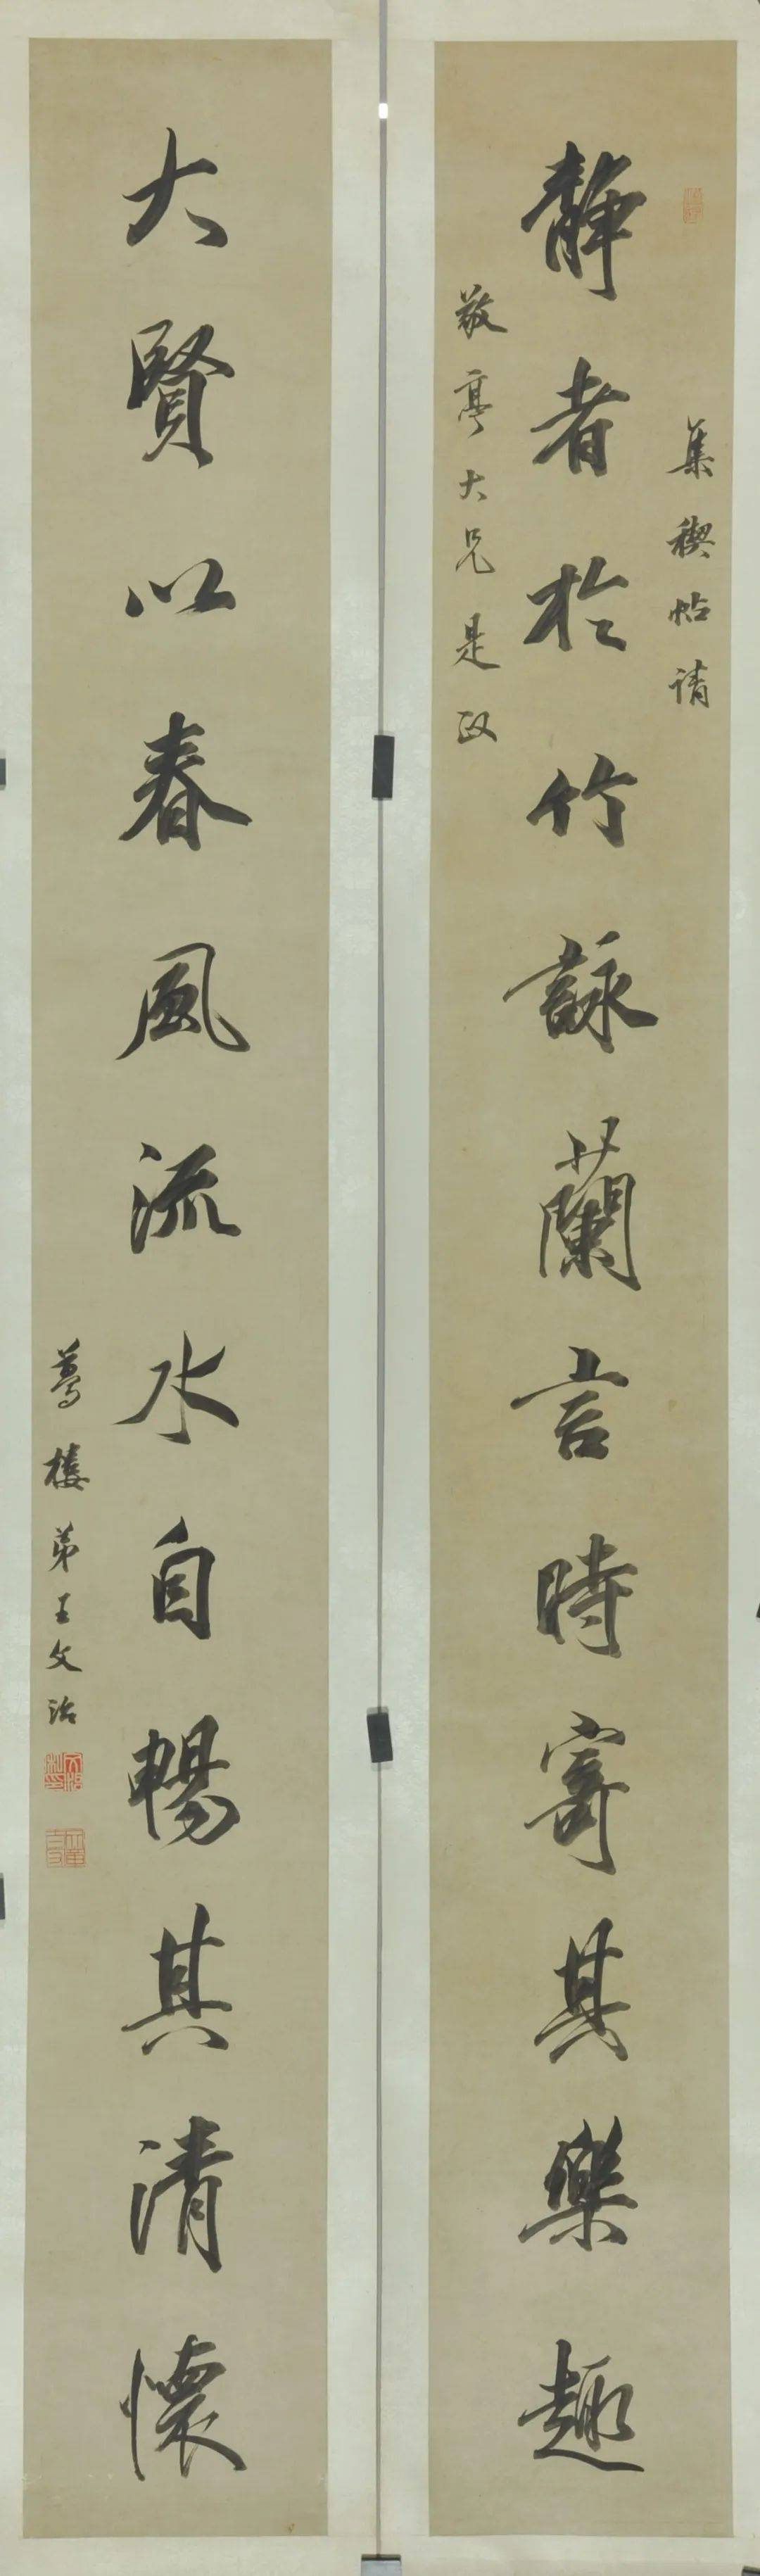 集禊帖請
靜者於竹詠蘭言時寄其樂趣
敬亭大兄是政
大賢以春風流水自暢其清懷
夢樓弟王文治